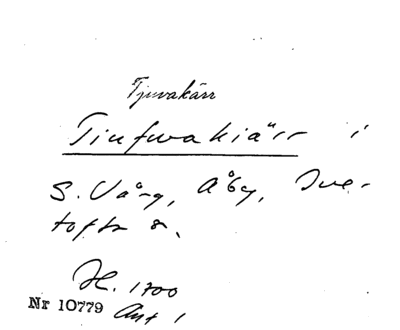 Tjuvakärr
Tiufwakiärr i
S. Vång, Åby, Tve-
tofta s.
H. 1700
Nr 10779 Ant 1